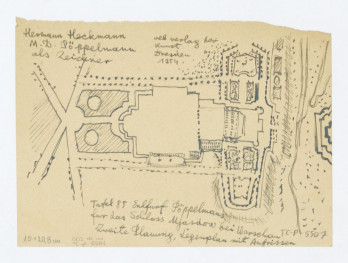 Hermann Heckmann
M. D. Pöppelmann
als Zeichner
veb verlag der
Kunst
Dresden
1954
Tafel 85 Entwurf Pöppelmanns
für das Schloss Ujasdow bei Warschau
Zweite Planung, Lageplan mit Aufrissen